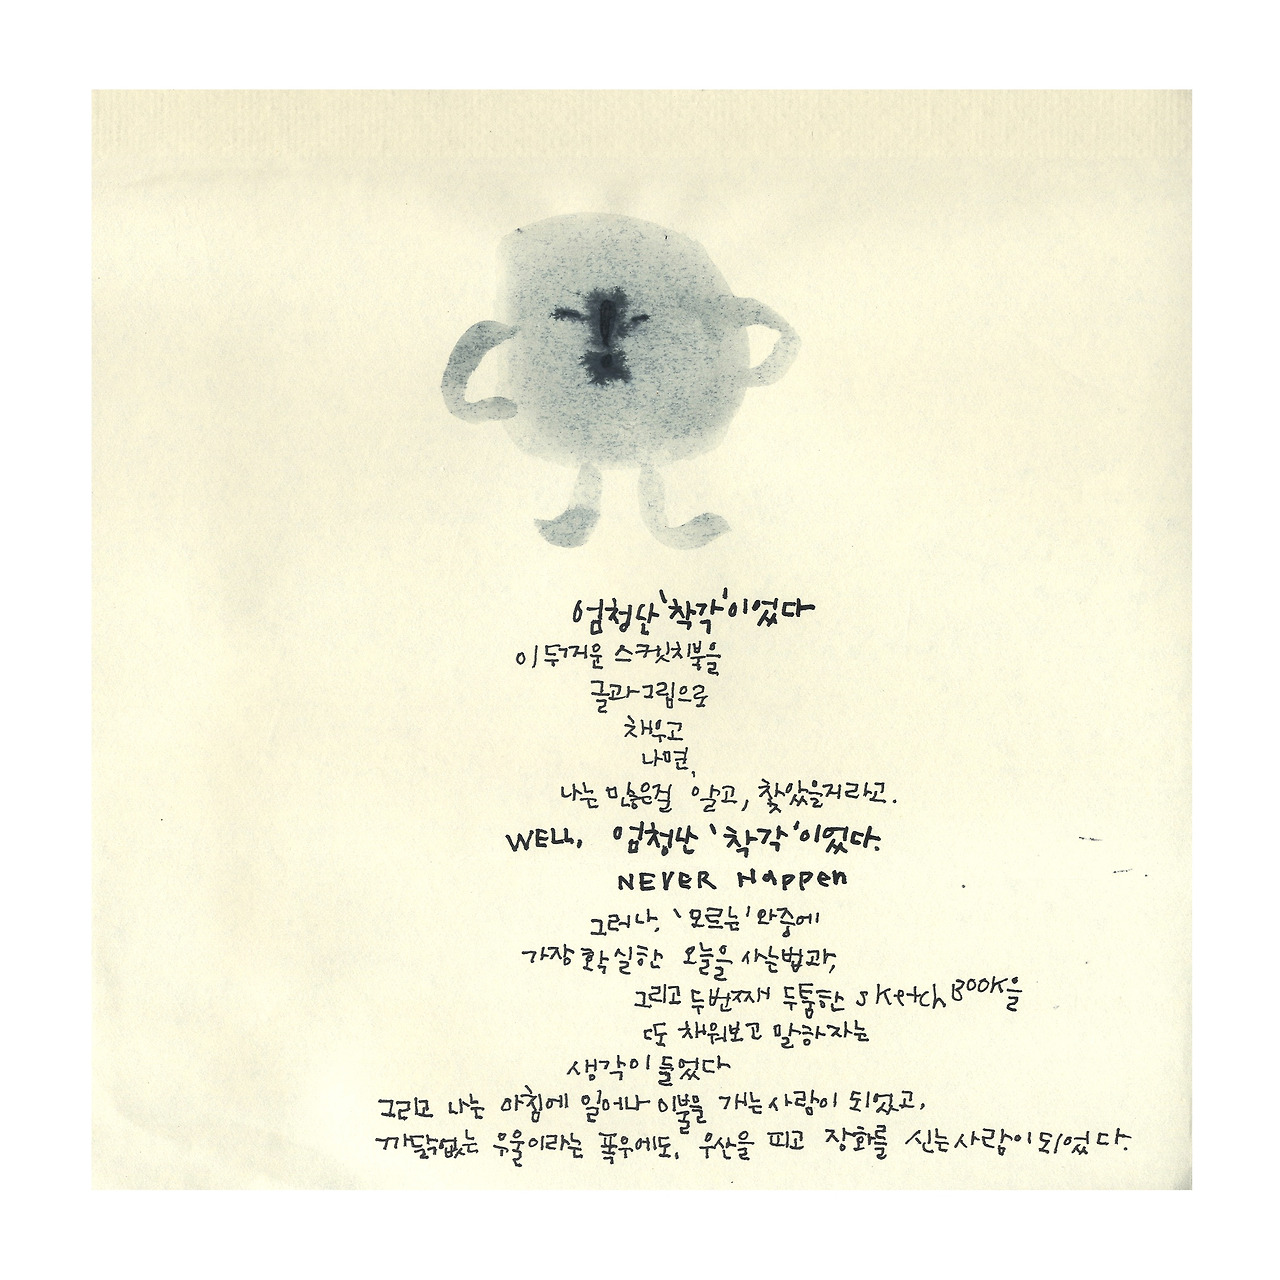 엄청난 '착각'이었다
이 두꺼운 스케치북을
글과 그림으로
채우고
나면,
나는 많은걸 알고, 찾았을지라고.
WELL, 엄청난 '착각'이었다.
NEVER Happen
그러나, '모르는' 와중에
가장 확실한 오늘을 사는법과,
그리고 두번째 두툼한 sketch BOOK을
또 채워보고 말하자는
생각이 들었다
그리고 나는 아침에 일어나 이불을 개는 사람이 되었고,
까닭없는 우울이라는 폭우에도, 우산을 피고 장화를 신는 사람이 되었다.